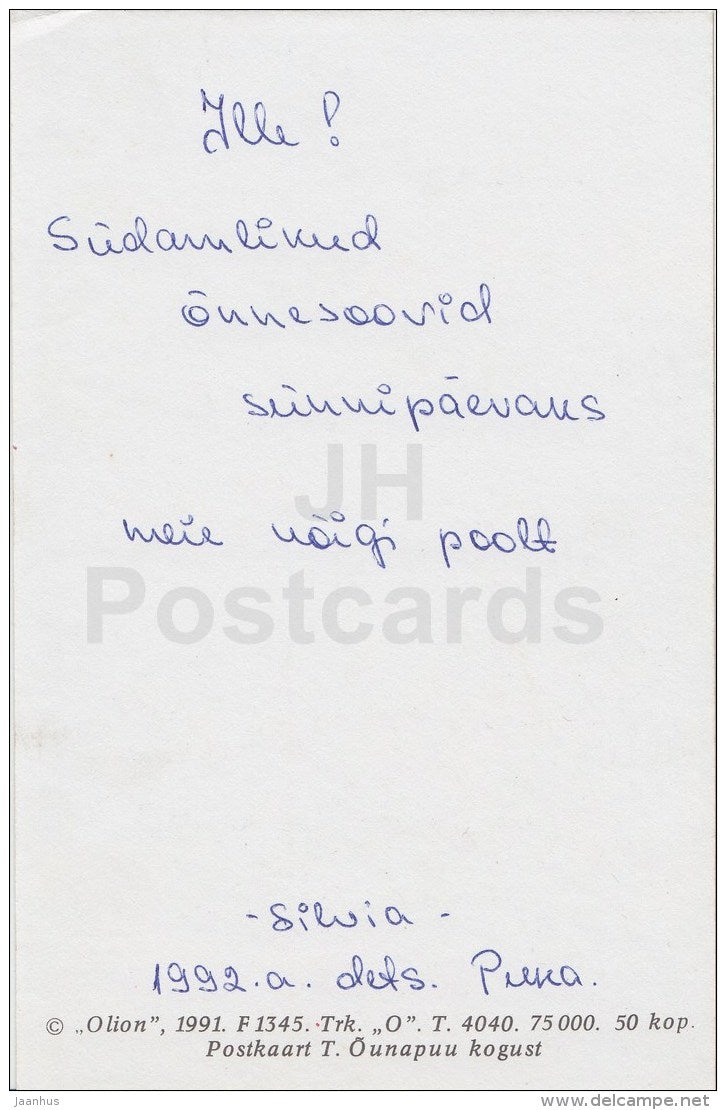 Ille!
Südamlikud
õnnesoovid
sünnipäevaks
meie kõigi poolt
JH
Postcards
- Silvia -
1992.a. dets. Puka.
© „Olion”, 1991. F 1345. Trk. „O”. T. 4040. 75 000. 50 kop.
Postkaart T. Õunapuu kogust
Jaanhus
www.delcampe.net